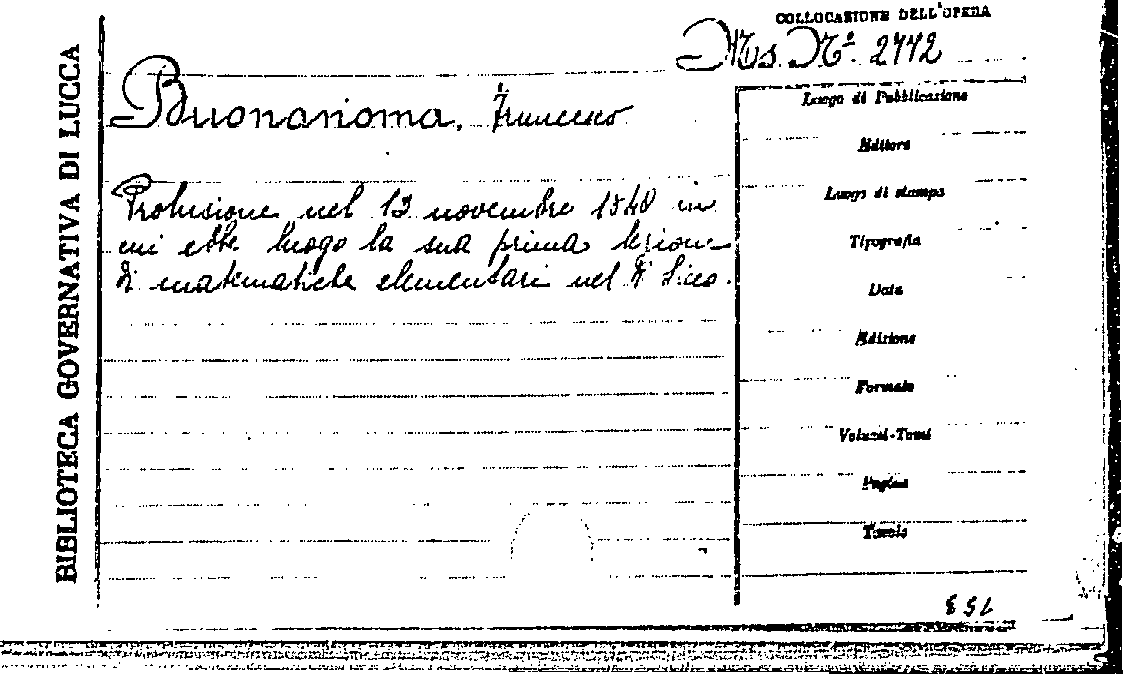 COLLOCAZIONE DELL'OPERA
Ms. Nº. 2442
Buonanoma, Francesco
Prolusione nel 12 novembre 1840 in
cui ebbe luogo la sua prima lezione
di matematiche elementari nel Rº Liceo.
BIBLIOTECA GOVERNATIVA DI LUCCA
Luogo di Pubblicazione
Editore
Luogo di stampa
Tipografia
Data
Edizione
Formato
Volumi-Tomi
Pagine
Tavole